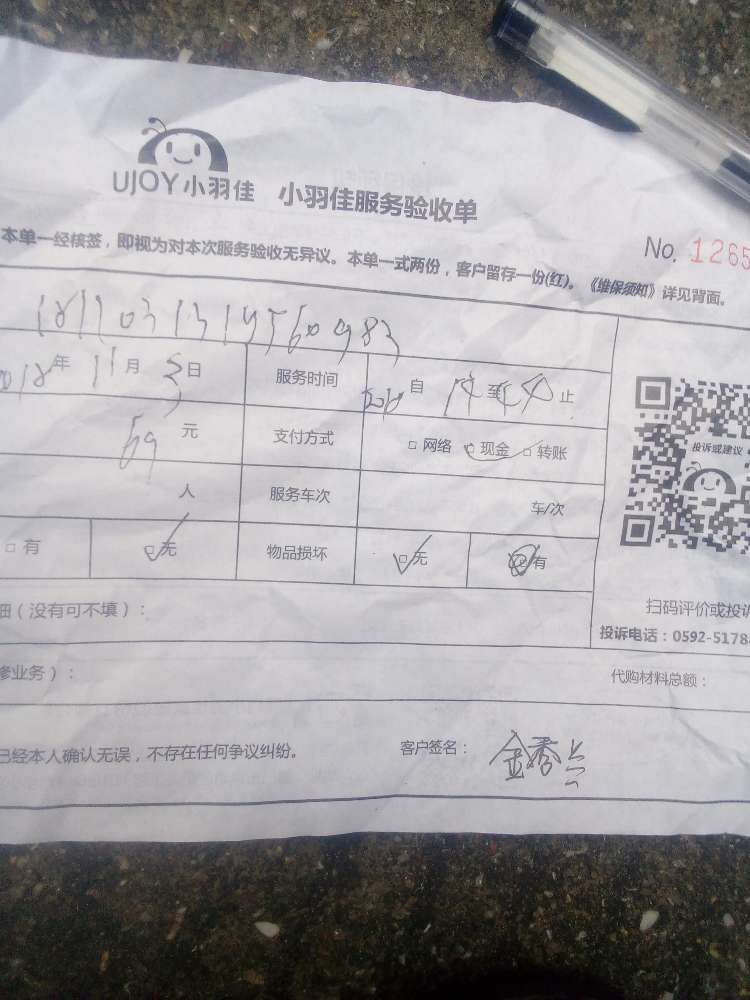 UJOY小羽佳 小羽佳服务验收单
No. 1265
本单一经核签，即视为对本次服务验收无异议。本单一式两份，客户留存一份(红)。《维保须知》详见背面。
1811031319560983
2018年11月3日 服务时间 自 至 止
69元 支付方式 □网络 □现金 □转账
人 服务车次 车/次
□有 □无 物品损坏 □无 □有
投诉或建议
细（没有可不填）：
扫码评价或投诉
投诉电话：0592-5178
修业务）： 代购材料总额：
已经本人确认无误，不存在任何争议纠纷。 客户签名：金秀兰